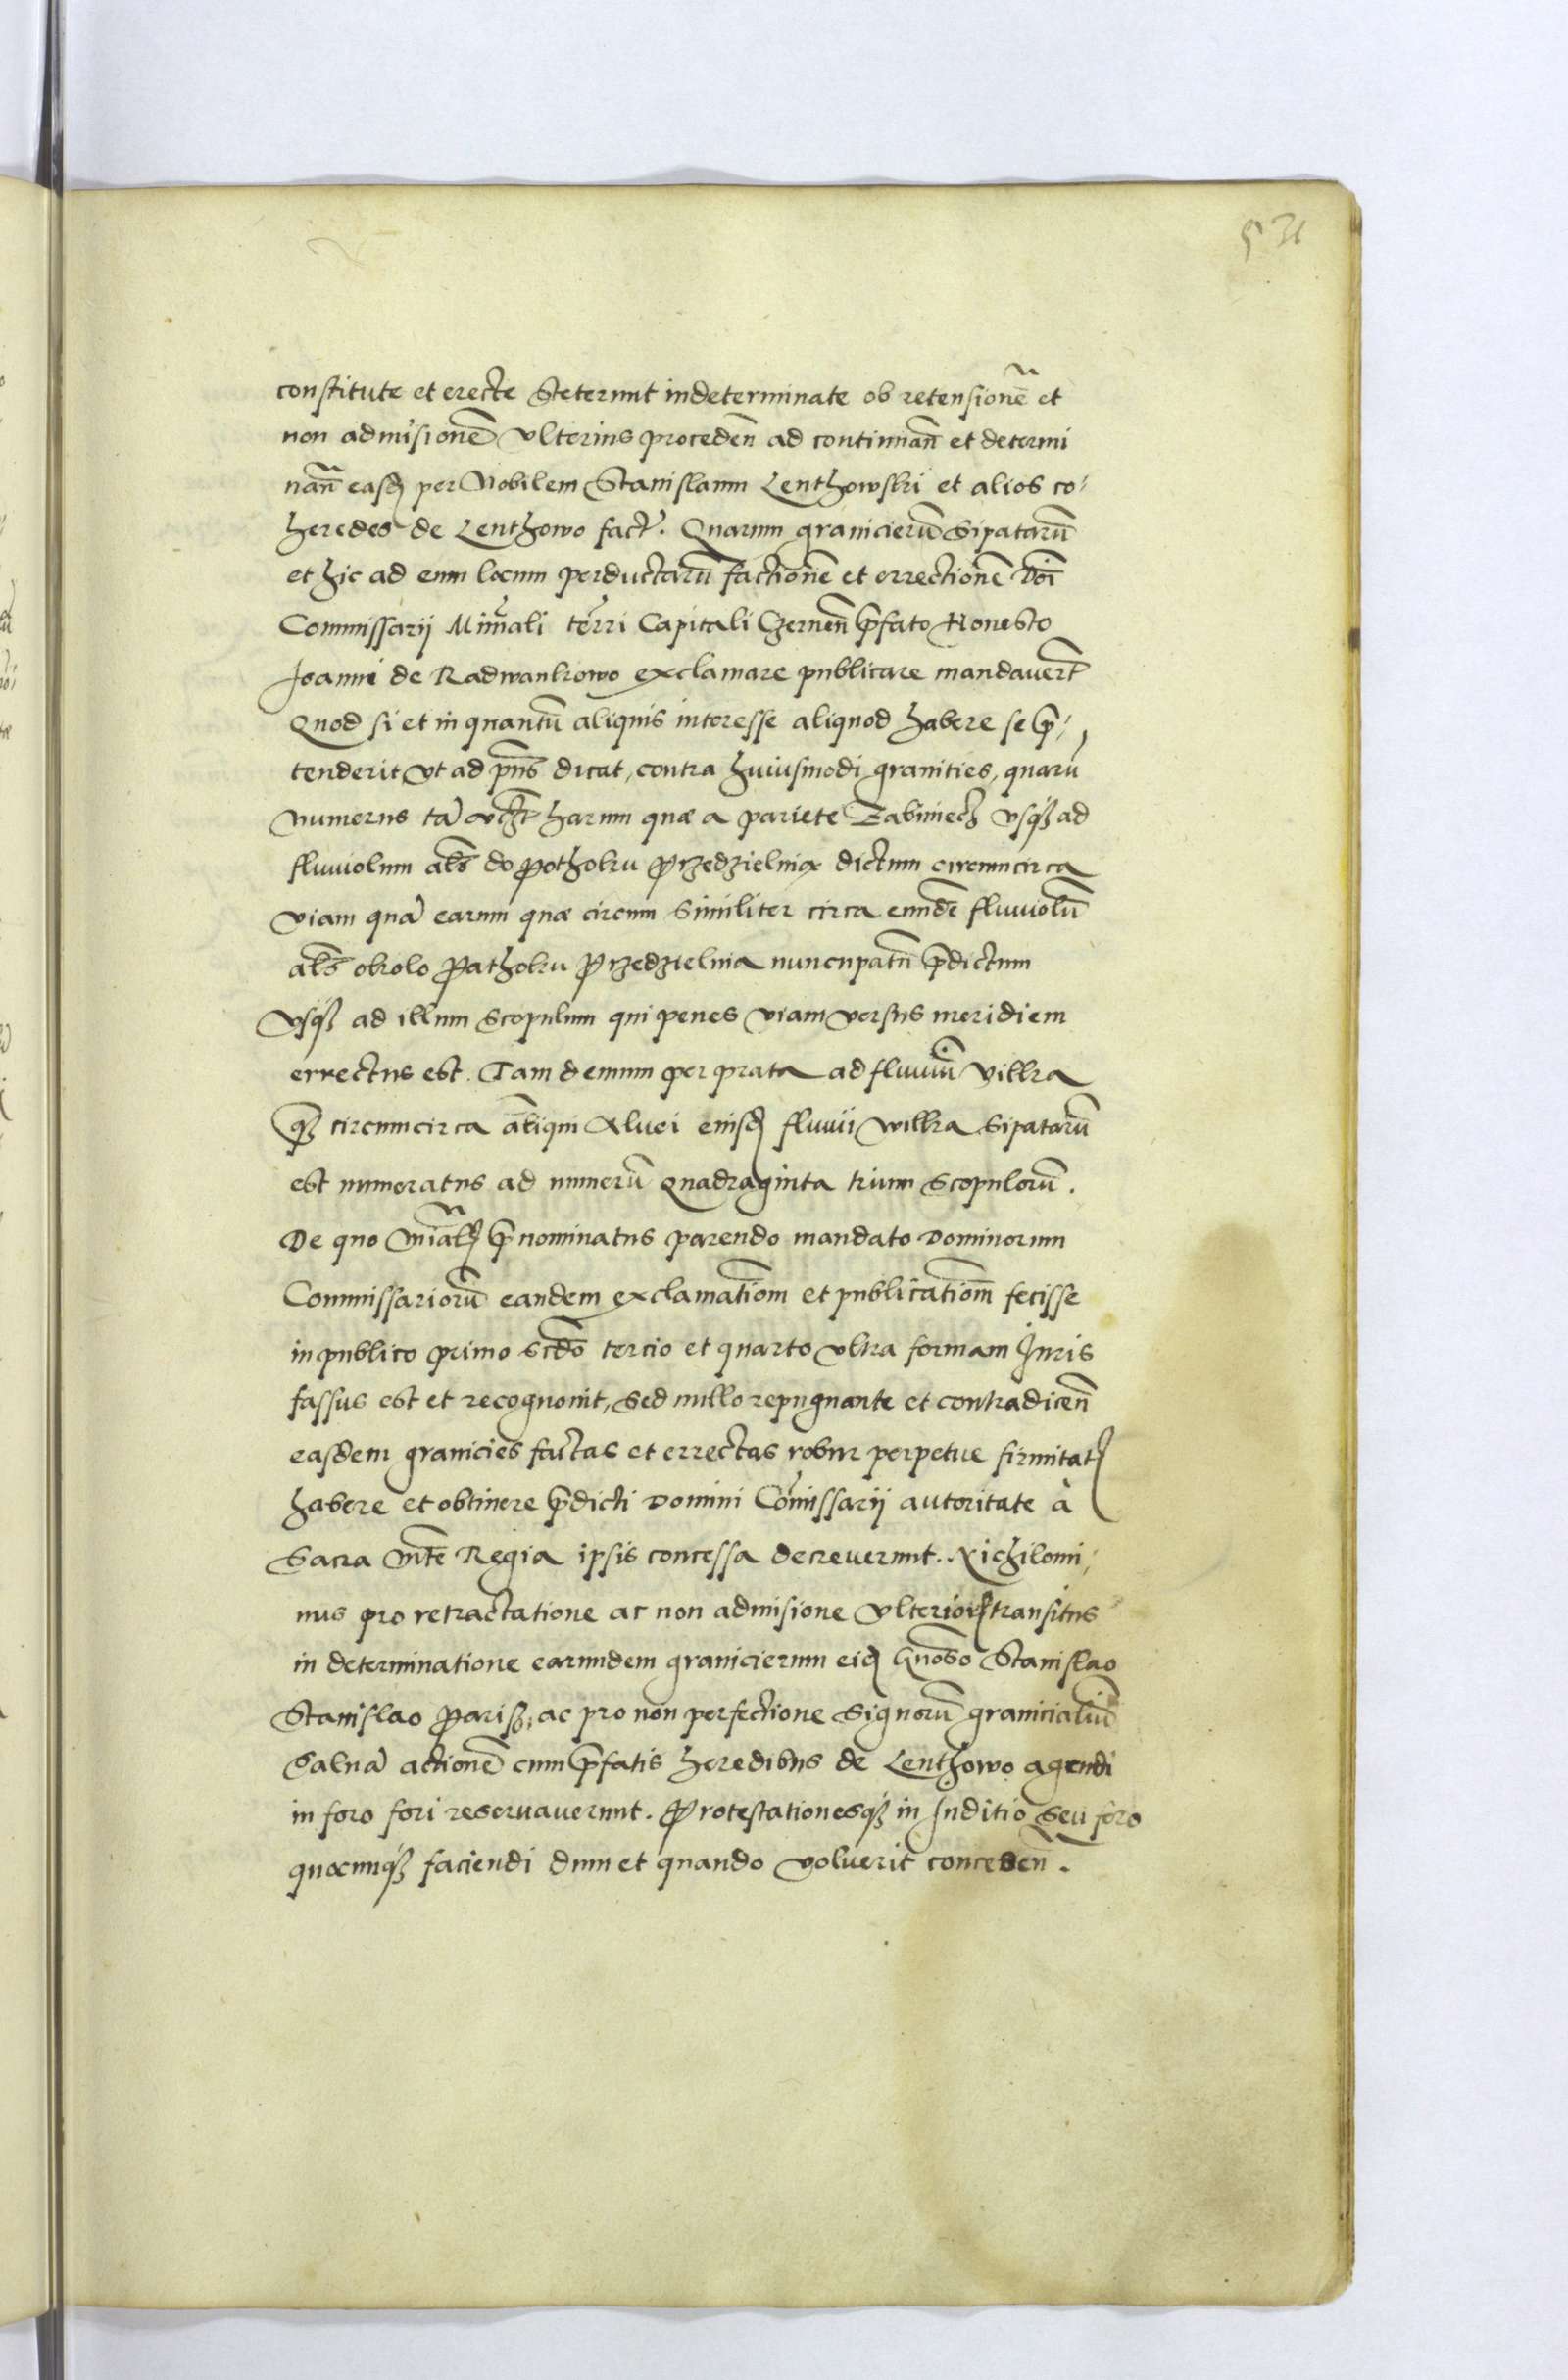 531
constitute et erecte Steterunt indeterminate ob retensionē et
non admisionē vlterius proceden̄ ad continuan̄ et determi
nan̄ easd per Nobilem Stanislaum Lenthowski et alios co-
heredes de Lenthowo fact. Quarum granicierū Sipatarū
et hic ad eum locum perductarū factionē et errectionē Dn̄i
Commissarij Minr̄ali terr̄i Capitali Czernen̄ p̄fato Honesto
Joanni de Radwankowo exclamare publicare mandavert̄
Quod si et in quantū aliquis interesse aliquod habere se p̄-
tenderit vt ad pn̄s dicat, contra huiusmodi granities, quarū
numerus tā harum quæ a pariete Zabiniech vsq3 ad
fluuiolum al̄s do Pothoku Przedzielnia dictum circumcirca
viam quā earum quæ circum Similiter circa eundē fluuiolū
al̄s okolo Pathoku Przedzielnia nuncupatū p̄dictum
vsq3 ad illum Scopulum qui penes viam versus meridiem
errectus est. Tam demum per prata ad fluuiū Vilkra
q3 circumcirca an̄tiqui Aluei eiusd fluuij Wilkra Sipatarū
est numeratus ad numerū Quadraginta trium Scopulorū.
De quo Min̄al p̄nominatus parendo mandato Dominorum
Commissariorū eandem exclamatiōm et publicatiōm fecisse
in publico primo Scdō tercio et quarto vltra formam Juris
fassus est et recognouit, Sed nullo repugnante et contradicen̄
easdem granicies factas et errectas robur perpetue firmitat
habere et obtinere p̄dicti Domini Com̄issarij autoritate à
Sacra Mt̄e Regia ipsis concessa decreuerunt. Nichilomi-
nus pro retractatione ac non admisione vlterior transitus
in determinatione earumdem granicierum eid Gn̄oso Stanislao
Stanislao Parisz, ac pro non perfectione Signorū granicialiū
Saluā actionē cum p̄fatis heredibus de Lenthowo agendi
in foro fori reseruauerunt. Protestationesq3 in Juditio Seu foro
quocunq3 faciendi dum et quando voluerit conceden̄.